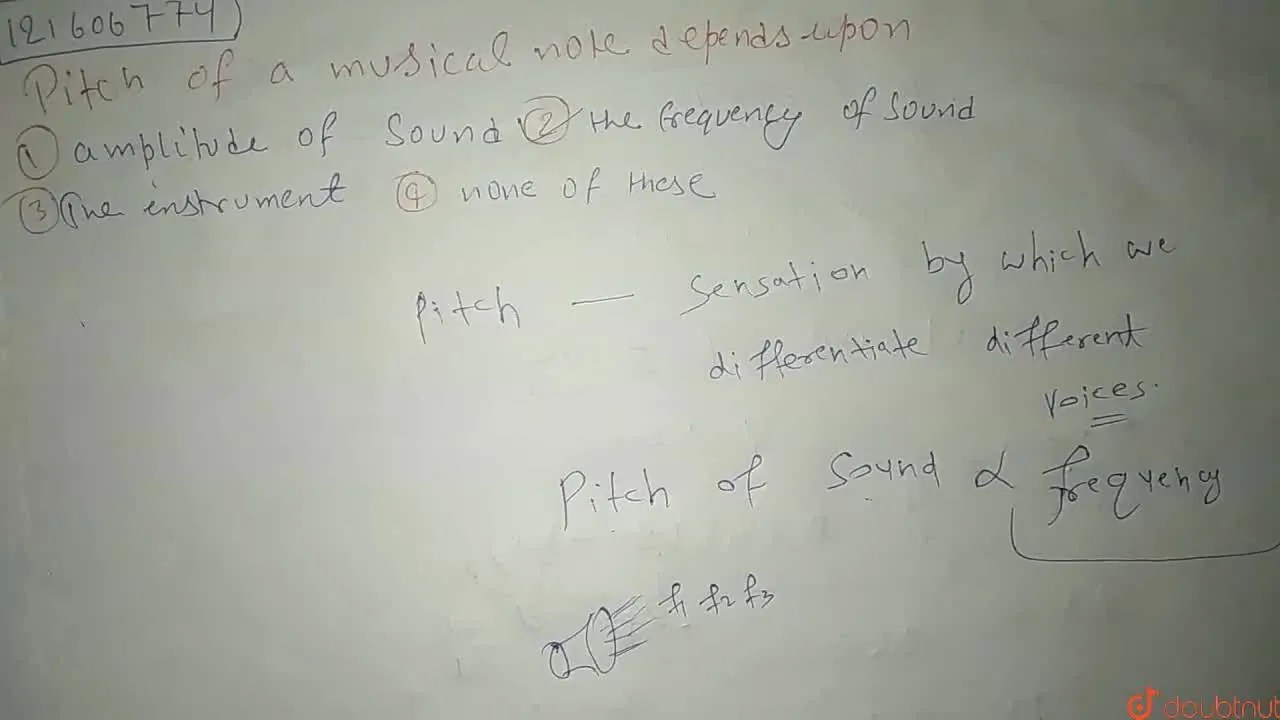 121606774
Pitch of a musical note depends upon
① amplitude of Sound ② the frequency of sound
③ The instrument ④ none of these
Pitch — sensation by which we
differentiate different
voices.
Pitch of Sound ∝ frequency
f1 f2 f3
doubtnut